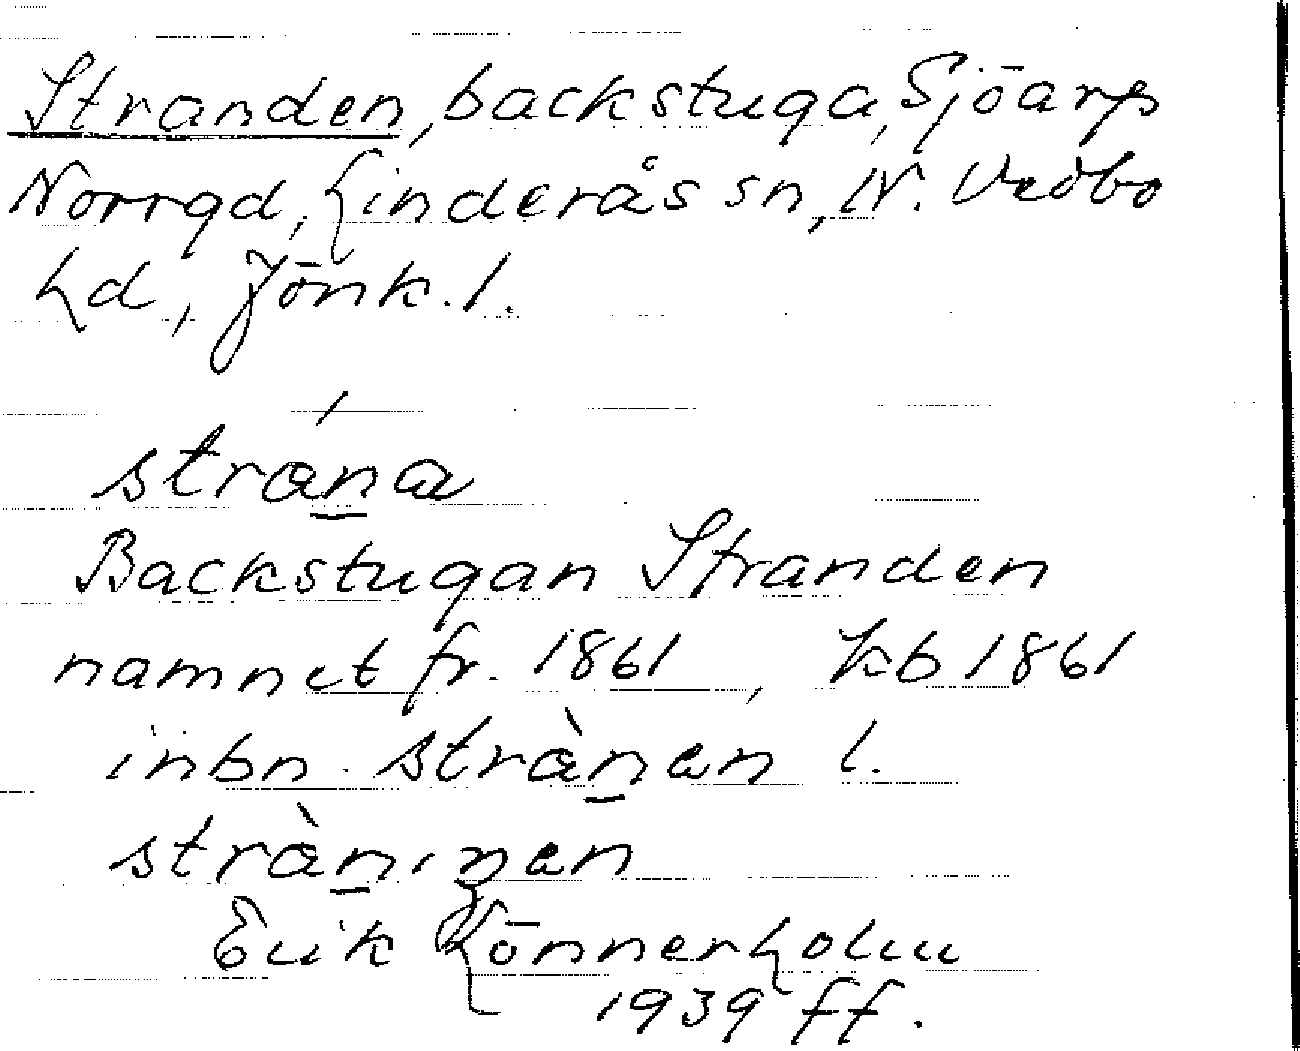 Stranden, backstuga, Sjöarp
Norrgd, Linderås sn, N. Vedbo
hd, Jönk. l.
stra&#x301;n̲a
Backstugan Stranden
namnet fr. 1861, Kb 1861
inbn. stràn̲en l.
stràn̲iŋen
Erik Lönnerholm
1939 ff.